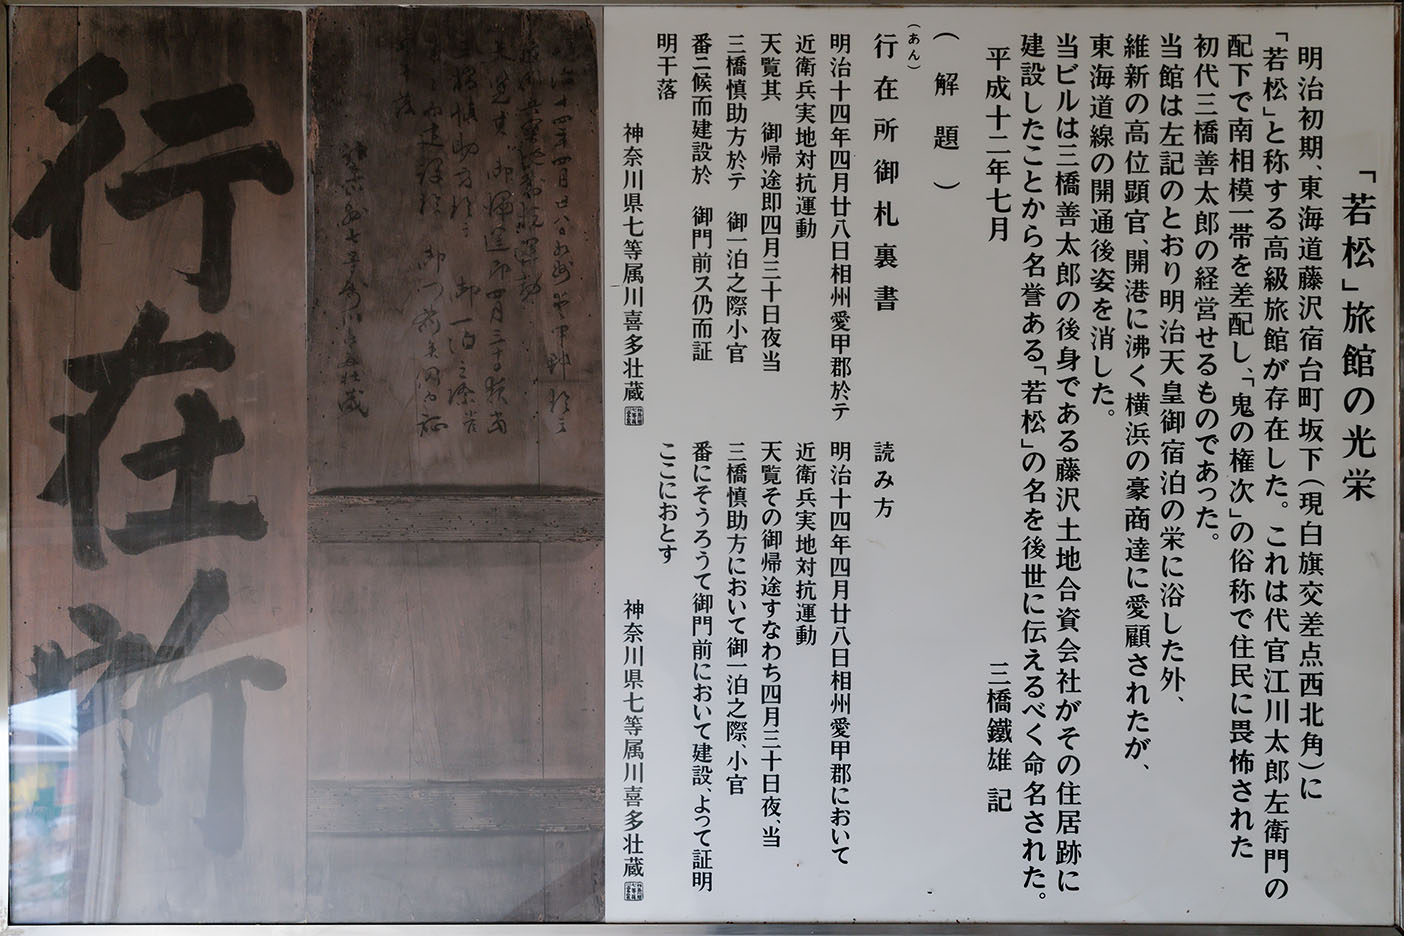 「若松」旅館の光栄
明治初期、東海道藤沢宿台町坂下(現白旗交差点西北角)に
「若松」と称する高級旅館が存在した。これは代官江川太郎左衛門の
配下で南相模一帯を差配し、「鬼の権次」の俗称で住民に畏怖された
初代三橋善太郎の経営せるものであった。
当館は左記のとおり明治天皇御宿泊の栄に浴した外、
維新の高位顕官、開港に沸く横浜の豪商達に愛顧されたが、
東海道線の開通後姿を消した。
当ビルは三橋善太郎の後身である藤沢土地合資会社がその住居跡に
建設したことから名誉ある「若松」の名を後世に伝えるべく命名された。
平成十二年七月
三橋鐵雄 記
(解題)
(あん)
行在所御札裏書
明治十四年四月廿八日相州愛甲郡於テ
近衛兵実地対抗運動
天覧其 御帰途即四月三十日夜当
三橋慎助方於テ 御一泊之際小官
番ニ候而建設於 御門前ス仍而証
明干落
神奈川県七等属川喜多壮蔵
読み方
明治十四年四月廿八日相州愛甲郡において
近衛兵実地対抗運動
天覧その御帰途すなわち四月三十日夜、当
三橋慎助方において御一泊之際、小官
番にそうろうて御門前において建設、よって証明
ここにおとす
神奈川県七等属川喜多壮蔵
行在所